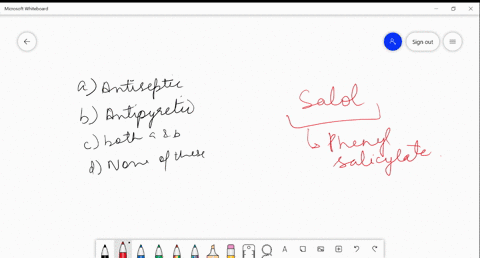 Microsoft Whiteboard
Sign out
a) Antiseptic
b) Antipyretic
c) both a & b
d) None of these
Salol
Phenyl
salicylate.